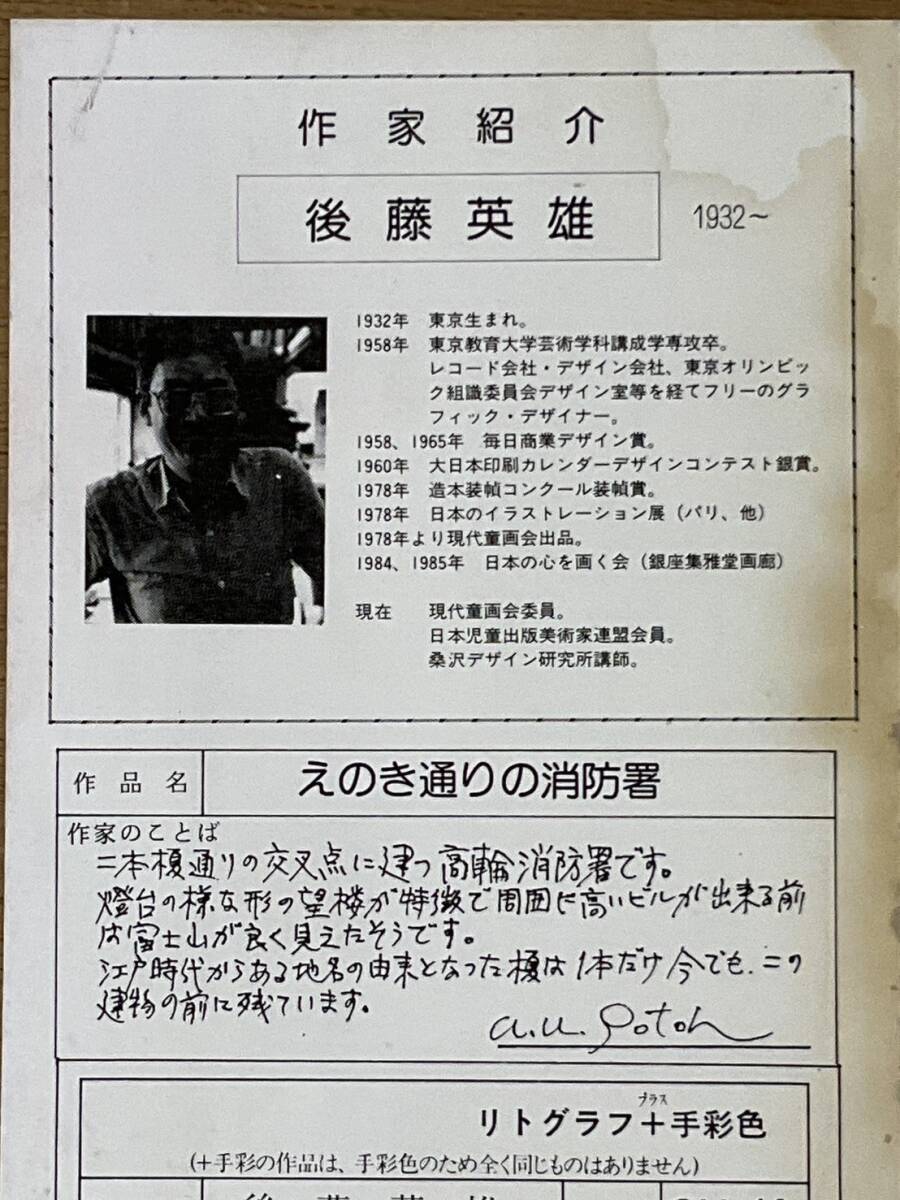 作家紹介
後藤英雄 1932～
1932年 東京生まれ。
1958年 東京教育大学芸術学科講成学専攻卒。
レコード会社・デザイン会社、東京オリンピッ
ク組識委員会デザイン室等を経てフリーのグラ
フィック・デザイナー。
1958、1965年 毎日商業デザイン賞。
1960年 大日本印刷カレンダーデザインコンテスト銀賞。
1978年 造本装幀コンクール装幀賞。
1978年 日本のイラストレーション展（パリ、他）
1978年より現代童画会出品。
1984、1985年 日本の心を画く会（銀座集雅堂画廊）
現在 現代童画会委員。
日本児童出版美術家連盟会員。
桑沢デザイン研究所講師。
作品名 えのき通りの消防署
作家のことば
二本榎通りの交叉点に建つ高輪消防署です。
燈台の様な形の望楼が特徴で周囲に高いビルが出来る前
は富士山が良く見えたそうです。
江戸時代からある地名の由来となった榎は1本だけ今でも、この
建物の前に残ています。
a.u. gotoh
プラス
リトグラフ+手彩色
(+手彩の作品は、手彩色のため全く同じものはありません)
後藤英雄